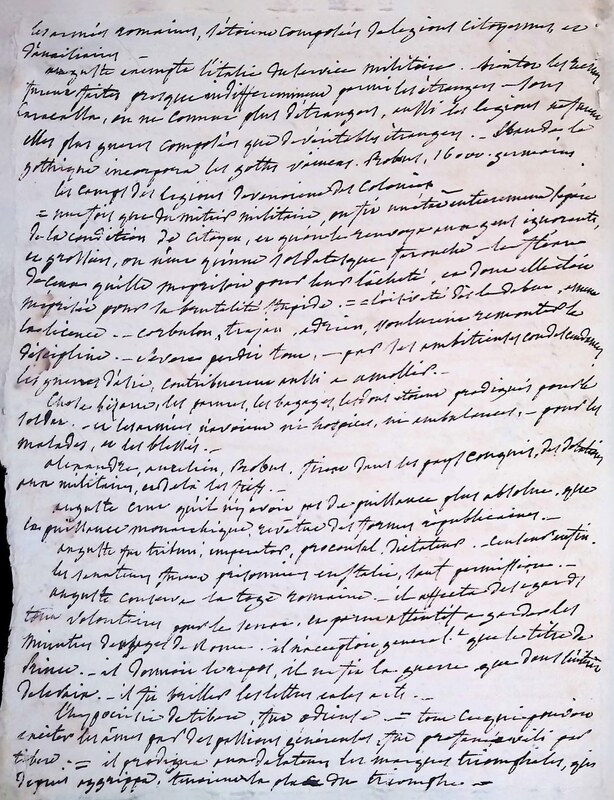 les armées romaines, étoient composées de légions citoyennes, et
d'auxiliaires —
auguste exempte l'italie du service militaire. bientot les
furent faites presque indifferemment parmi les étrangers — sous
Caracalla, on ne connut plus d'étrangers, aussi les légions ne furent
elles plus gueres composées que de véritables étrangers. — Claude le
gothique incorpora les goths vaincus. Probus, 16000 germains.
les camps des légions devenoient des colonies
= une fois que du métier militaire, on fit un état entierement séparé
de la condition de citoyen, et qu'on le renvoya aux gens ignorants,
et grossiers, on n'eut qu'une soldatesque farouche — le fléau
de ceux qu'elle méprisoit pour leur lâcheté, et dont elle étoit
méprisée pour sa brutalité stupide. = l'oisiveté dès le debut, amena
la licence. — corbulon, trajan, adrien, voulurent remonter la
discipline. — severe perdit tout, — par ses ambitieuses condescendances
les guerres d'asie, contribuerent aussi a amollir. —
Chose bizarre, les parures, les bagages, les dons étoient prodigués pour le
soldat. — et les armées n'avoient ni hospices, ni ambulances, — pour les
malades, et les blessés. —
alexandre, aurelien, Probus, firent dans les pays conquis, des dotations
aux militaires, et de là les fiefs. —
auguste crut qu'il n'y avoit pas de puissance plus absolue, que
la puissance monarchique revêtue des formes républicaines. —
auguste fut tribun, imperator, proconsul, dictateur. — censeur enfin.
les senateurs furent prisonniers en italie, sauf permission. —
auguste conserva la toge romaine. — il affecta des égards
tout volontaires pour le senat, et parut attentif a garder les
minuties des usages de Rome. il n'acceptoit general.t que le titre de
Prince. — il donnoit le repos, il ne fit la guerre que dans l'intérêt
de l'état. — il fit briller les lettres et les arts. —
L'hypocrisie de tibere, fut odieuse — tout ce qui pouvoit
exciter les ames par des passions généreuses, fut par
tibere. = il prodigua aux délateurs les marques triomphales, qui
depuis aggrippa, tenoient la place du triomphe. =